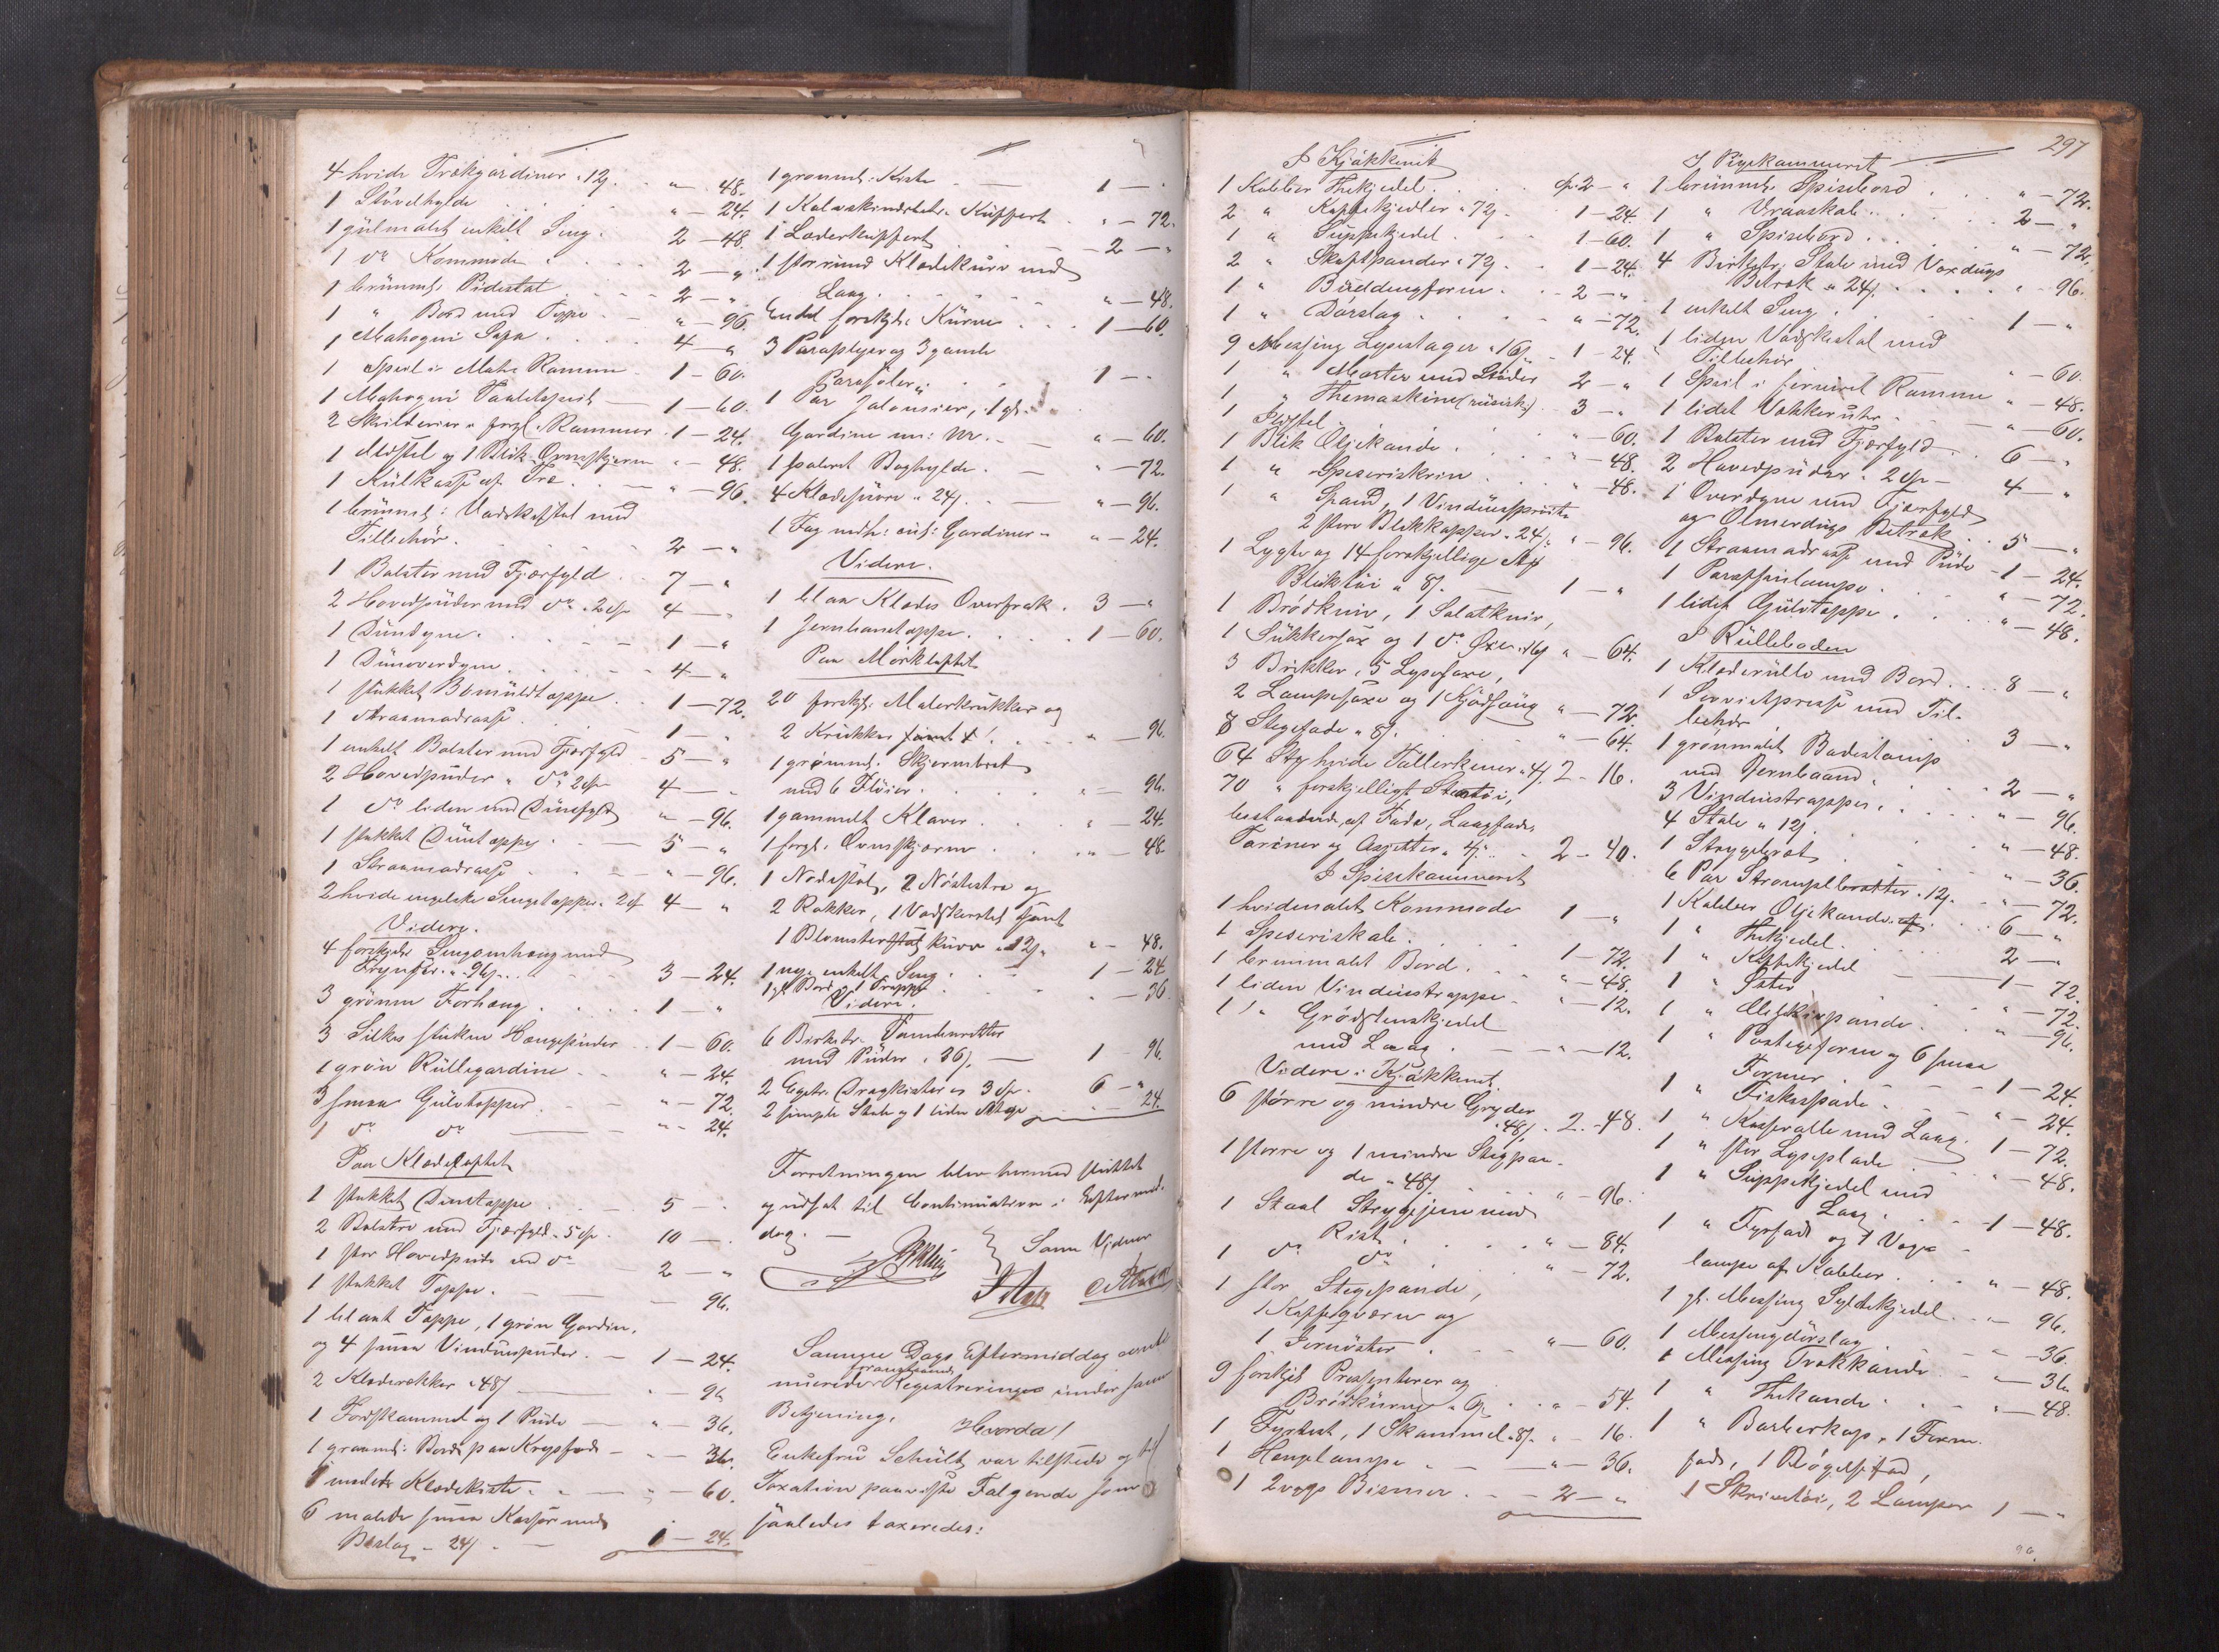 4 hvide Trækgardiner " 12ʃ. " — 48.
1 Stövelhylde " — 24.
1 gülmalet enkelt Seng. 2 — 48.
1 do Kommode 2 — "
1 brünml. Pidestal 2 — "
1 " Bord med Teppe " — 96.
1 Mahogni Sofa 4 — "
1 Speil i Mah. Ramme 1 — 60.
1 Mahogni Toiletspeil 1 — 60.
2 Skilderier i forgl. Rammer 1 — 24.
1 og 1 Blik Ovnsskjerm " — 48.
1 Külkasse af Træ " — 96.
1 brünml: Vadskestol med
Tillehör. 2 — "
1 Bolster med Fjærfyld 7 — "
2 Hovedpüder med do " 2 4 — "
1 Dündyne. 1 — "
1 Dünoverdyne 4 — "
1 stukket Bomüldtæppe 1 — 72.
1 Straamadrasse 1 — "
1 enkelt Bolster med Fjærfyld 5 — "
2 Hovedpüder " do 2 4 — "
1 do liden med Dünfyld " — 96.
1 stukket Düntæppe 5 — "
1 Straamadrasse " — 96.
2 hvide engelske Sengetæpper " 2 4 — "
Videre.
4 forskjellige Sengeomhæng med
Frynser " 96ʃ. 3 — 24.
3 grönne Forhæng 1 — "
3 Silkes Hængepüder 1 — 60.
1 grön Rüllegardine " — 24.
3 smaa Gülvtæpper " — 72.
1 do do " — 24.
Paa Klædeloftet
1 stukket Düntæppe 5 — "
2 Bolstre med Fjærfyld " 5 10 — "
1 stor Hovedpüde med do 2 — "
1 stukket Tæppe " — 96.
1 blaat Tæppe, 1 grön Gardin,
og 4 smaa Vindüespüder. 1 — 24.
2 Klæderækker " 48ʃ " — 96
1 Fodskammel og 1 Püde " — 36.
1 graaml: Bord paa Krydsfod " — 36.
1 malede Klædekiste " — 60.
6 malede smaa Kasser med
Beslag " 24ʃ. 1 — 24.
1 graaml: Kiste 1 — "
1 Kalveskindsbetr. Küffert " — 72.
1 Læderküffert 2 — "
1 stor rund Klædekürv med
Laag " — 48.
En del forskjl. Kürve 1 — 60.
3 Paraplyer og 3 gamle
Parasoler 1 — "
1 Par Jalousier, 1 gl.
Gardine m: m. " — 60.
1 poleret Boghylde " — 72.
4 Klædesnore " 24ʃ. " — 96.
1 Fag Gardiner " — 24.
Videre.
1 blaa Klædes Overfrak 3 — "
1 Jernbanetæppe 1 — 60.
Paa Mörkloftet
20 forskjl. Malerkrukker og
2 Krükker " — 96.
1 grønml. Skjermbret
med 6 Flöier " — 96.
1 gammelt Klaver " — 24.
1 forgl. Ovnskjærm " — 48
1 Nodestol, 2 Nöstetræ og
2 Rokker, 1 Vadskerstol samt
1 Blomsterkürv " 12ʃ. " — 48.
1 nye enkelt Seng 1 — 24
1 gl. Bord og 1 Trappe " — 36
Videre.
6 Birketr.
med Püder " 36ʃ. 1 — 96.
2 Egetr. Dragkister " 3 6 — "
2 simple Stole og 1 liden Stige " — 24.
Forretningen blev hermed slüttet
og udsat til Continuation i Eftermid-
dag. —
Som Vidner
Samme Dags Eftermiddag conti-
nueredes foranstaaende Registreringen under samme
Betjening,
Hvorda!
Enkefru Schült var tilstede og til
Taxation paaviste Følgende som
saaledes taxeredes:
297
I Kjøkkenet
1 Kobber Thekjedel 2 — "
2 " Kaffekjedler " 72ʃ. 1 — 24.
1 " Süppekjedel 1 — 60.
2 " Skaftpander " 72ʃ. 1 — 24.
1 " Büddingform 2 — "
1 " Dörslag " — 72.
9 Messing Lysestager " 16ʃ 1 — 24.
1 " Morter med Stöder 2 — "
1 " Themaskine (rüsisk) 3 — "
1 Pistel " — 60.
1 Blik Oljekande " — 48.
1 " Speseriskrin " — 48.
1 " Spand, 1 Vindüessprøite
2 store Blikkopper " 24ʃ. " — 96.
1 Lygte og 14 forskjellige Stk
Bliktöi " 8ʃ. 1 — "
1 Brödkniv, 1 Salatkniv,
1 Sükkersax og 1 do Øxe " 16ʃ " — 64.
3 Brikker, 5 Lysesaxe,
2 Lampesaxe og 1 Kjødsaug " — 72.
8 Stegefade " 8ʃ. " — 64.
64 Stk hvide Tallerkener " 4ʃ. 2 — 16.
70 " forskjelligt Stentöi,
bestaaende af Fade, Laagfade,
Teriner og Asjetter " 4ʃ. 2 — 40.
I Spisekammeret
1 hvidmalet Kommode 1 — "
1 Speseriskab 1 — 72.
1 brunmalet Bord " — 48.
1 liden Vindüestrappe " — 12.
1 " Grødstenskjedel
med Laag " — 12.
Videre i Kjøkkenet.
6 större og mindre Gryder
" 48ʃ. 2 — 48.
1 större og 1 mindre Stegpan-
de " 48ʃ. " — 96.
1 Staal Strygejern med
Rist " — 84.
1 do do " — 72.
1 stor Stegepande,
1 Kaffeqværn og
1 Jernöster " — 60.
9 forskjl. Presenterer og
Brödkürve " 6ʃ. " — 54.
1 Fyrbøt, 1 Skammel " 8ʃ. " — 16.
1 Hengelampe " — 36.
1 2vogs Bismer 2 — "
I Pigekammeret
1 brünmlt. Spisebord " — 72.
1 " Vraaskab 2 — "
1 " Spisebord " — 72.
4 Birketr. Stole med Voxdugs
Betræk " 24ʃ. " — 96.
1 enkelt Seng 1 — "
1 liden Vadskestol med
Tillehör " — 60.
1 Speil i fernieret Ramme " — 48.
1 lidet Vækkeruhr " — 60.
1 Bolster med Fjærfyld 6 — "
2 Hovedpüder " 2 — 4 — "
1 Overdyne med Fjærfyld
og Olmerdugs Betræk 5 — "
1 Straamadrasse med Püde 1 — 24.
1 Paraffinlampe " — 72.
1 lidet Gülvtæppe " — 48.
I Rülleboden
1 Klæderülle med Bord 8 — "
1 Servietpresse med Til-
lehör 3 — "
1 grönmalet Badestamp
med Jernbaand 2 — "
3 Vindüestrapper " — 96.
4 Stole " 12ʃ. " — 48.
1 Strygebræt " — 36.
6 Par Strømpebrætter " 12ʃ. " — 72.
1 Kobber Oljekande 6 — "
1 " Thekjedel 2 — "
1 " Kaffekjedel 1 — 72.
1 " Øster " — 72.
1 " Æleskivpande " — 96.
1 " Posteiform og 6 smaa
Former 1 — 24.
1 " Fiskespade " — 24.
1 " Kasserolle med Laag 1 — 72.
1 " stor Lyseplade " — 48.
1 " Süppekjedel med
Laag 1 — 48.
1 " Fyrfad og 1 Vogn-
lampe af Kobber " — 48.
1 gl. Messing Syltekjedel " — 96.
1 Messingdörslag " — 36.
1 Messing Trækkande " — 36
1 " Thekande " — 48.
1 " Barberkop, 1 Form-
fad, 1 Røgelsefad,
1 Skrivetöi, 2 Lamper 1 — "
96.